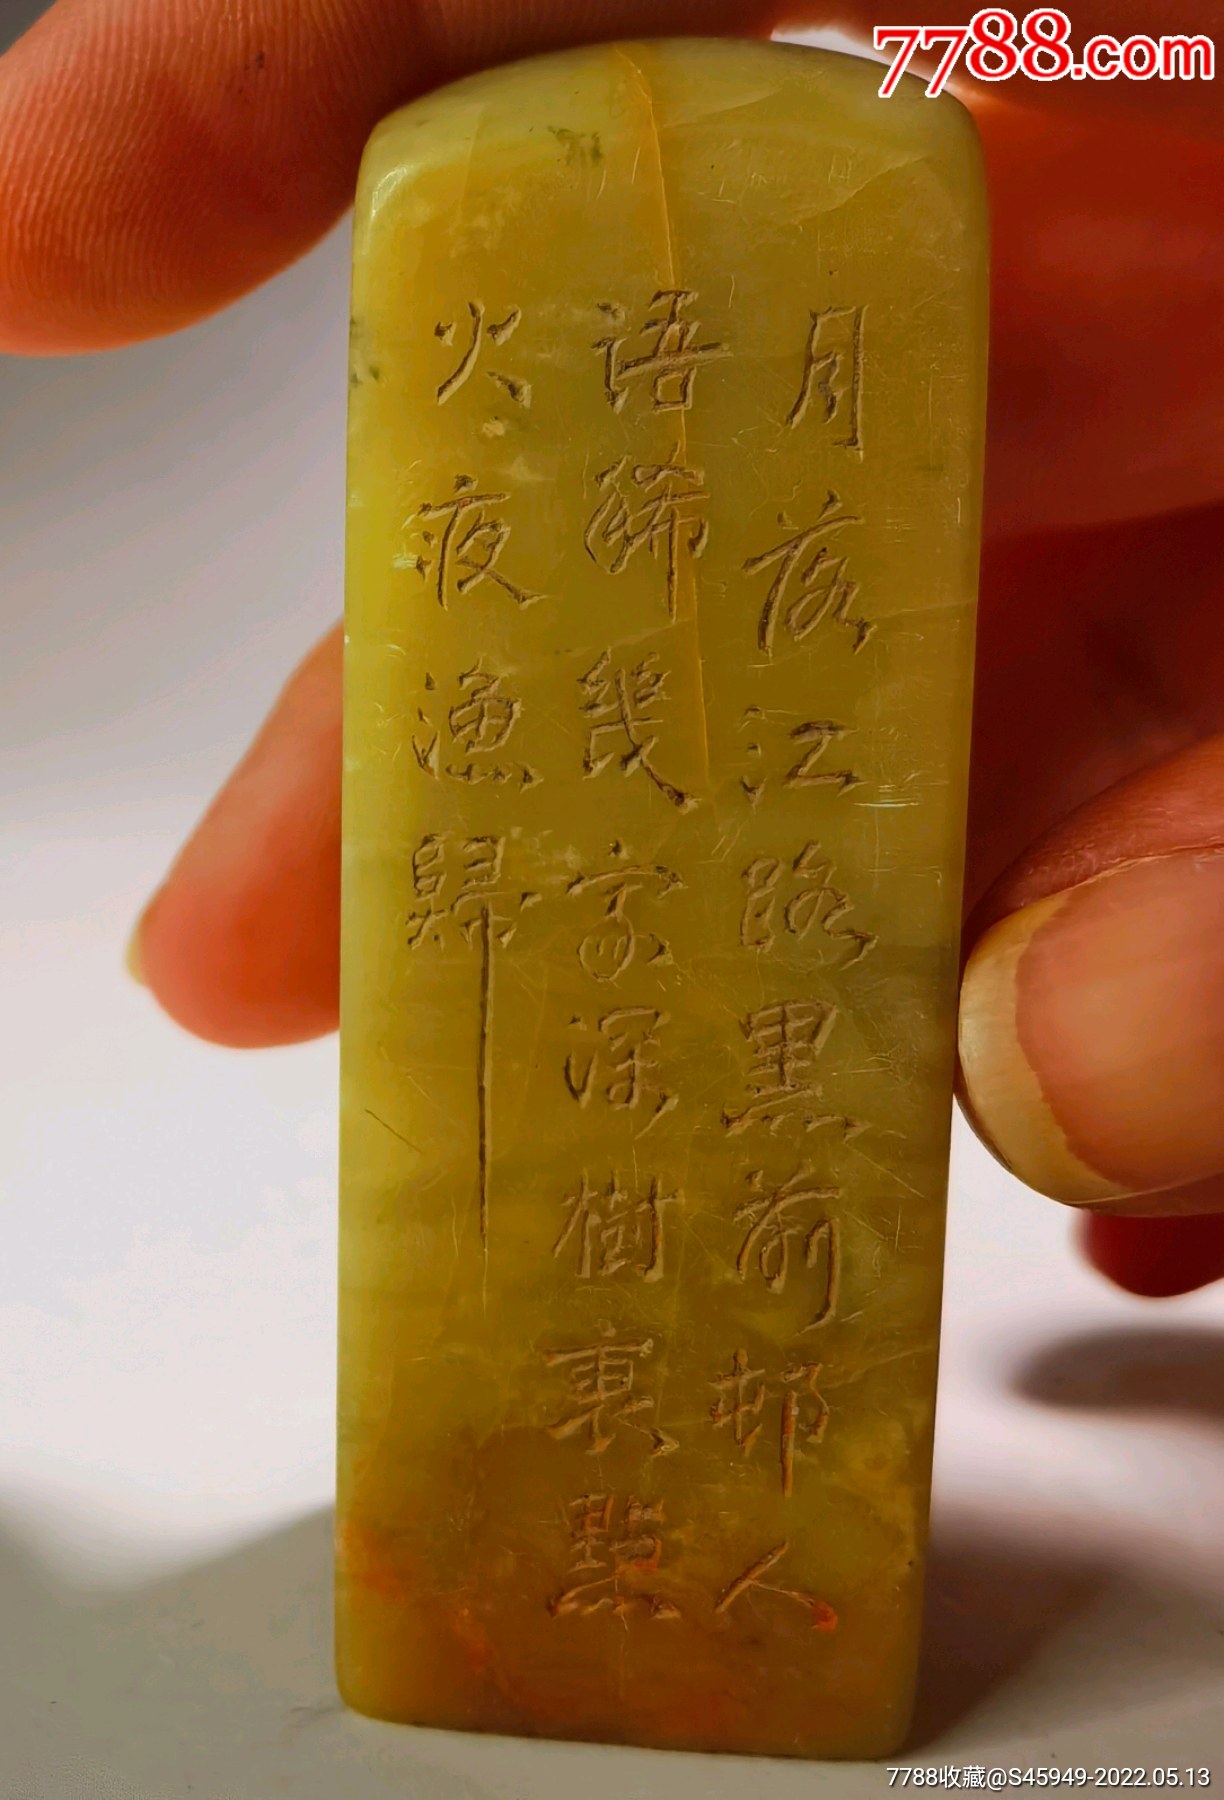 7788.com
月落江路黑前邨人
语稀幾家深樹裏點
火夜漁歸
7788收藏@S45949-2022.05.13